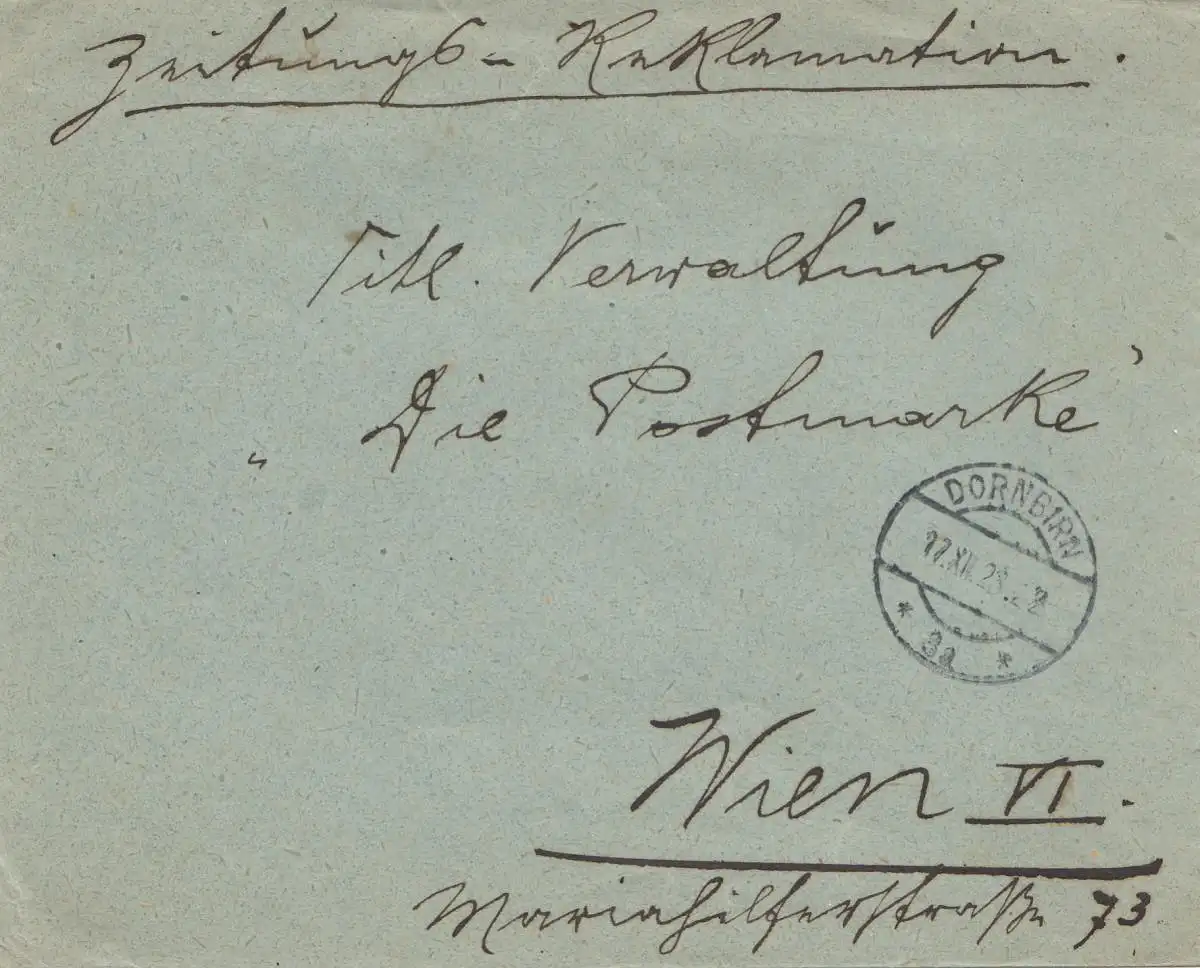 Zeitungs-Reklamation.
Titl. Verwaltung
„Die Postmarke"
DORNBIRN
17.XII.23
* 3a *
Wien VI.
Mariahilferstraße 73